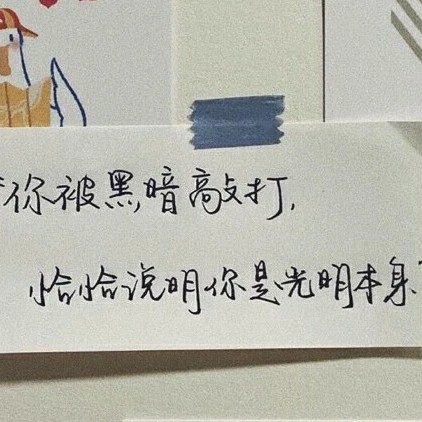 你被黑暗敲打,
恰恰说明你是光明本身